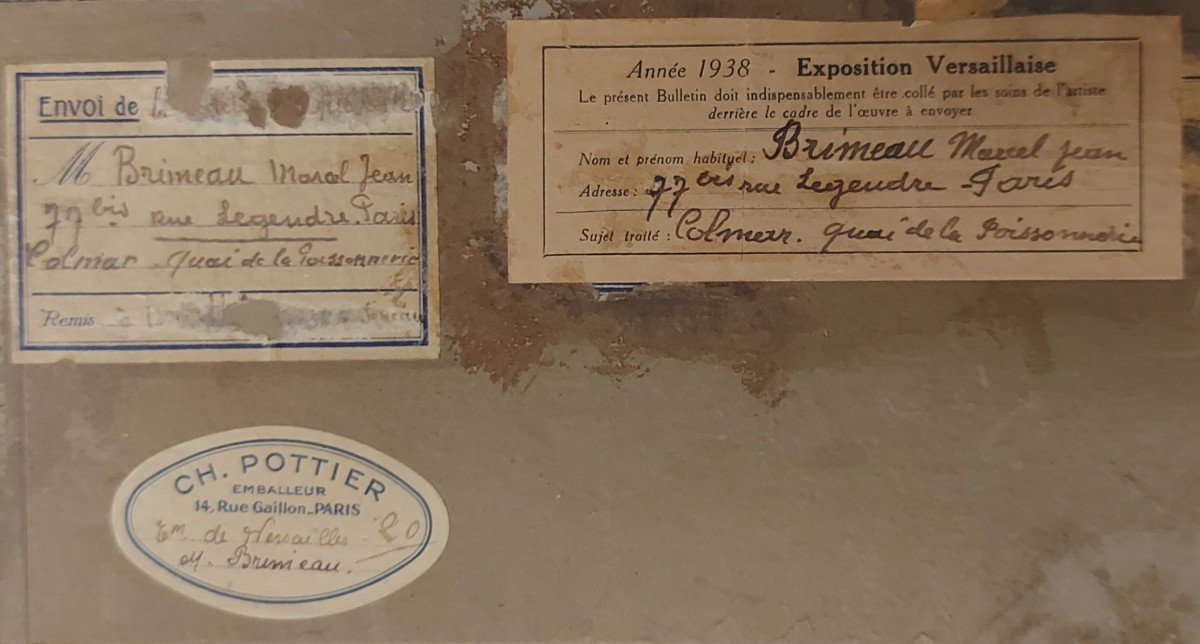 Envoi de
M Brimeau Marcel Jean
77 bis rue Legendre. Paris
Colmar quai de la Poissonnerie
Remis à
Année 1938 - Exposition Versaillaise
Le présent Bulletin doit indispensablement être collé par les soins de l'artiste
derrière le cadre de l'œuvre à envoyer
Nom et prénom habituel : Brimeau Marcel Jean
Adresse : 77 bis rue Legendre - Paris
Sujet traité : Colmar. quai de la Poissonnerie
CH. POTTIER
EMBALLEUR
14, Rue Gaillon_PARIS
de Versailles 20
M. Brimeau.